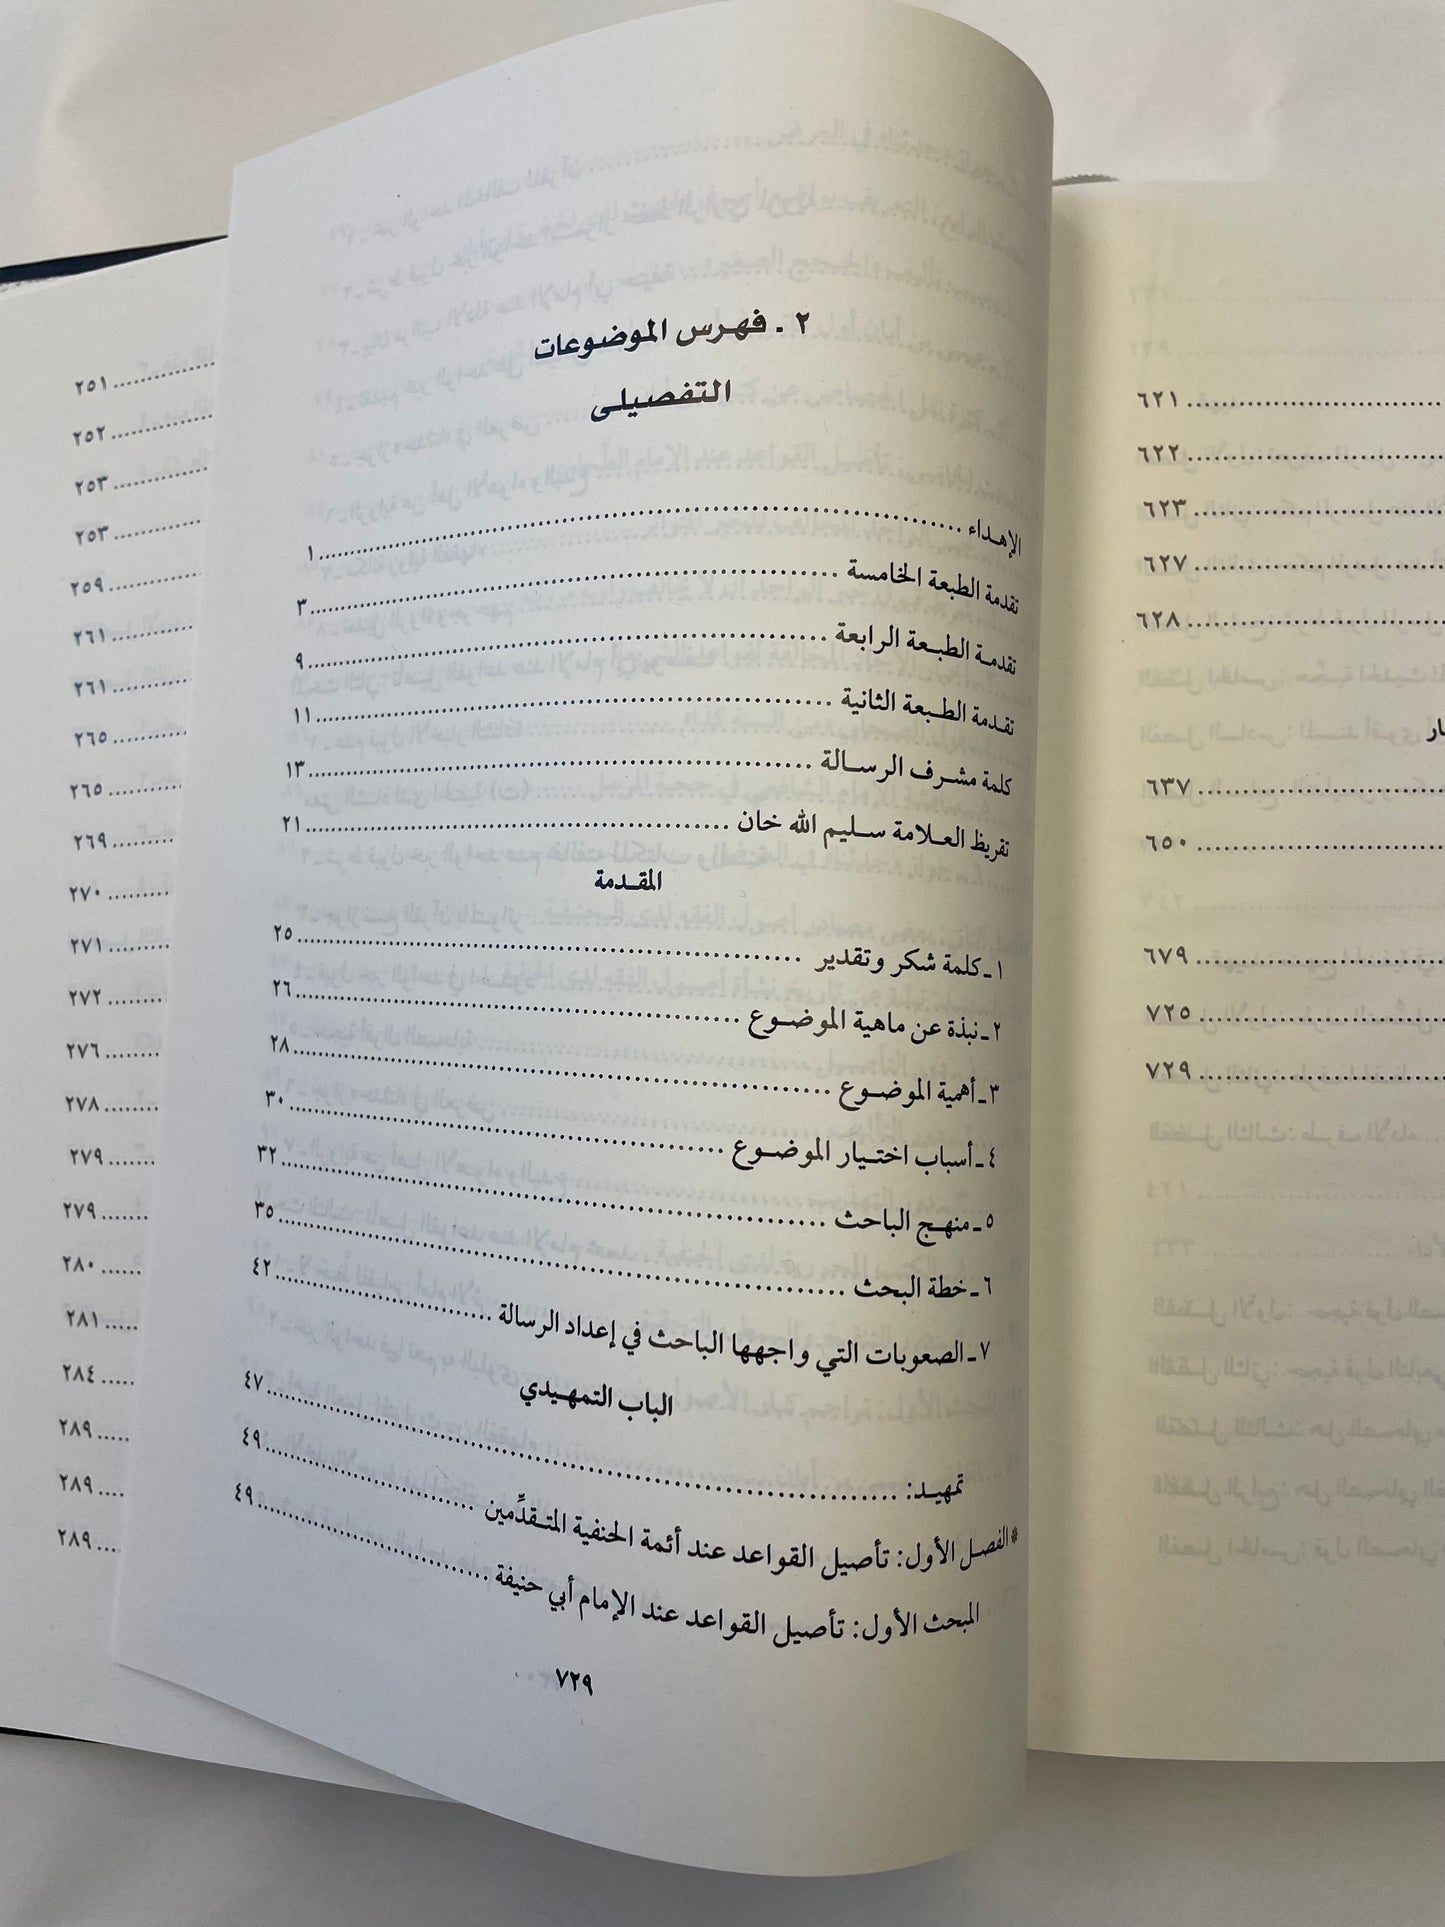 ٢ ـ فهرس الموضوعات
التفصيلى
الإهداء ........ ١
تقدمة الطبعة الخامسة ........ ٣
تقدمة الطبعة الرابعة ........ ٩
تقدمة الطبعة الثانية ........ ١١
كلمة مشرف الرسالة ........ ١٣
تقريظ العلامة سليم الله خان ........ ٢١
المقدمة
١ـ كلمة شكر وتقدير ........ ٢٥
٢ـ نبذة عن ماهية الموضوع ........ ٢٦
٣ـ أهمية الموضوع ........ ٢٨
٤ـ أسباب اختيار الموضوع ........ ٣٠
٥ـ منهج الباحث ........ ٣٢
٦ـ خطة البحث ........ ٣٥
٧ـ الصعوبات التي واجهها الباحث في إعداد الرسالة ........ ٤٢
الباب التمهيدي
تمهيد: ........ ٤٧
* الفصل الأول: تأصيل القواعد عند أئمة الحنفية المتقدِّمين ........ ٤٩
المبحث الأول: تأصيل القواعد عند الإمام أبي حنيفة ........ ٤٩
٧٢٩
٦٢١ ........
٦٢٢ ........
٦٢٣ ........
٦٢٧ ........
٦٢٨ ........
٦٣٧ ........
٦٥٠ ........
٦٧٩ ........
٧٢٥ ........
٧٢٩ ........
٢٥١ ........
٢٥٢ ........
٢٥٣ ........
٢٥٣ ........
٢٥٩ ........
٢٦١ ........
٢٦١ ........
٢٦٥ ........
٢٦٥ ........
٢٦٩ ........
٢٧٠ ........
٢٧١ ........
٢٧٢ ........
٢٧٦ ........
٢٧٨ ........
٢٧٩ ........
٢٧٩ ........
٢٨٠ ......
٢٨١ .....
٢٨٤ .....
٢٨٩ .....
٢٨٩ ....
٢٨٩ ...